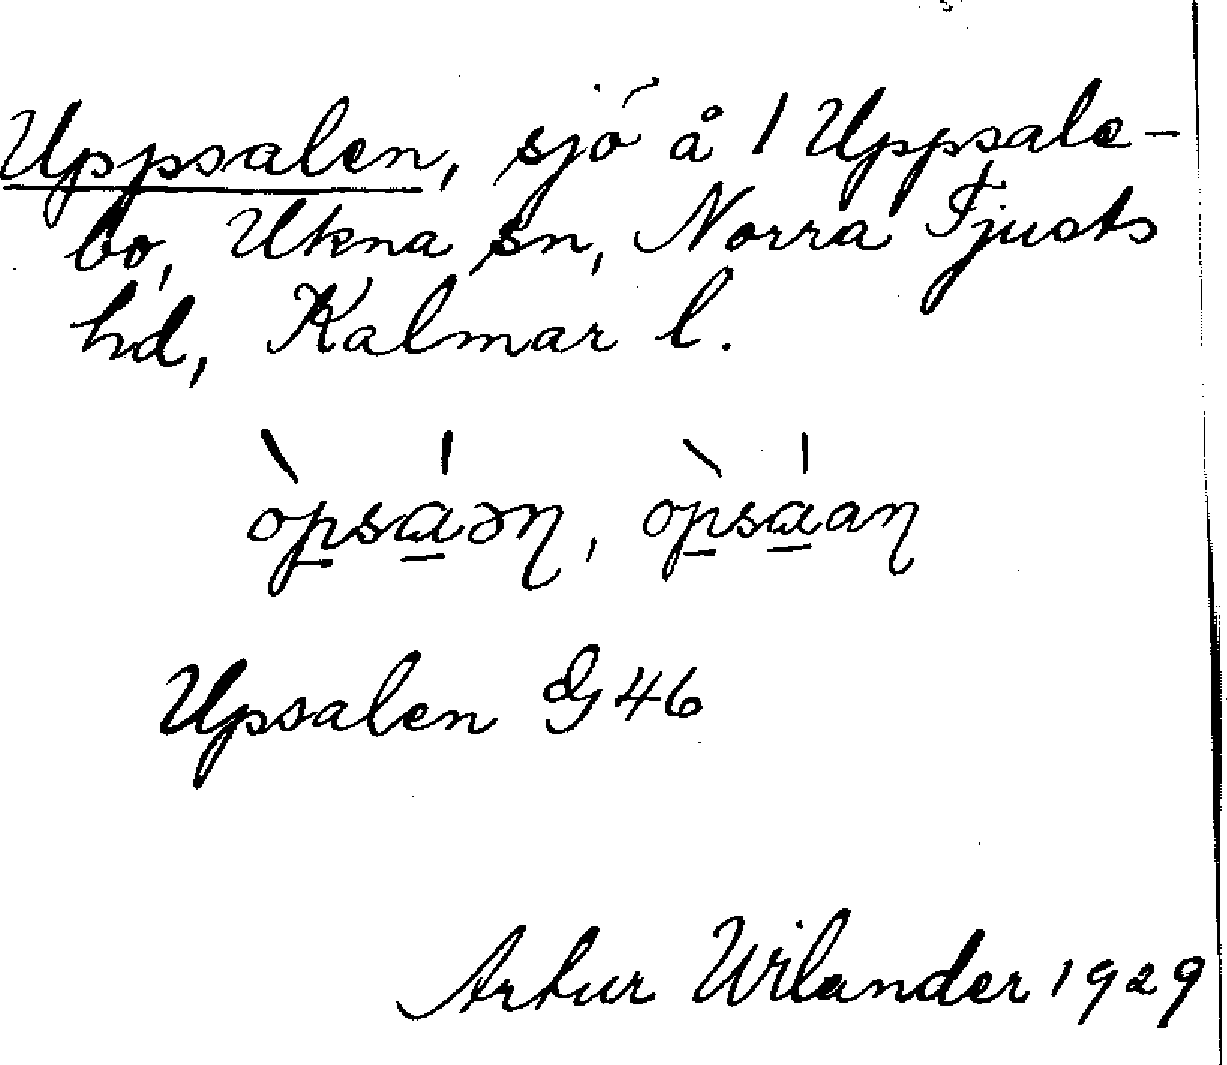 Uppsalen, sjö å 1 Uppsale-
bo, Ukna sn, Norra Tjusts
hd, Kalmar l.
Upsalen G 46
Artur Wilander 1929